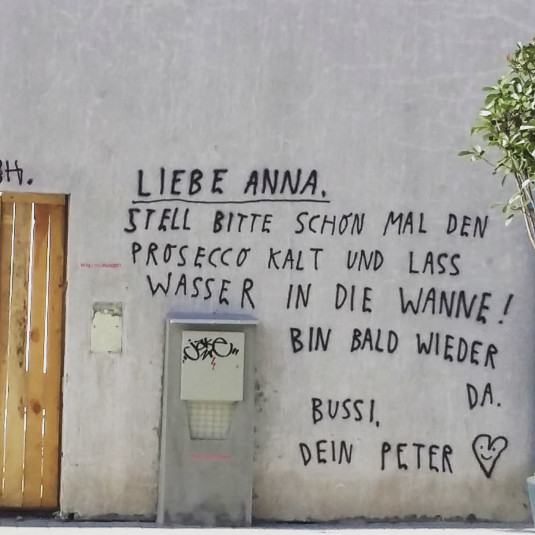 H.
LIEBE ANNA.
STELL BITTE SCHON MAL DEN
PROSECCO KALT UND LASS
WASSER IN DIE WANNE!
BIN BALD WIEDER
DA.
BUSSI,
DEIN PETER
jake